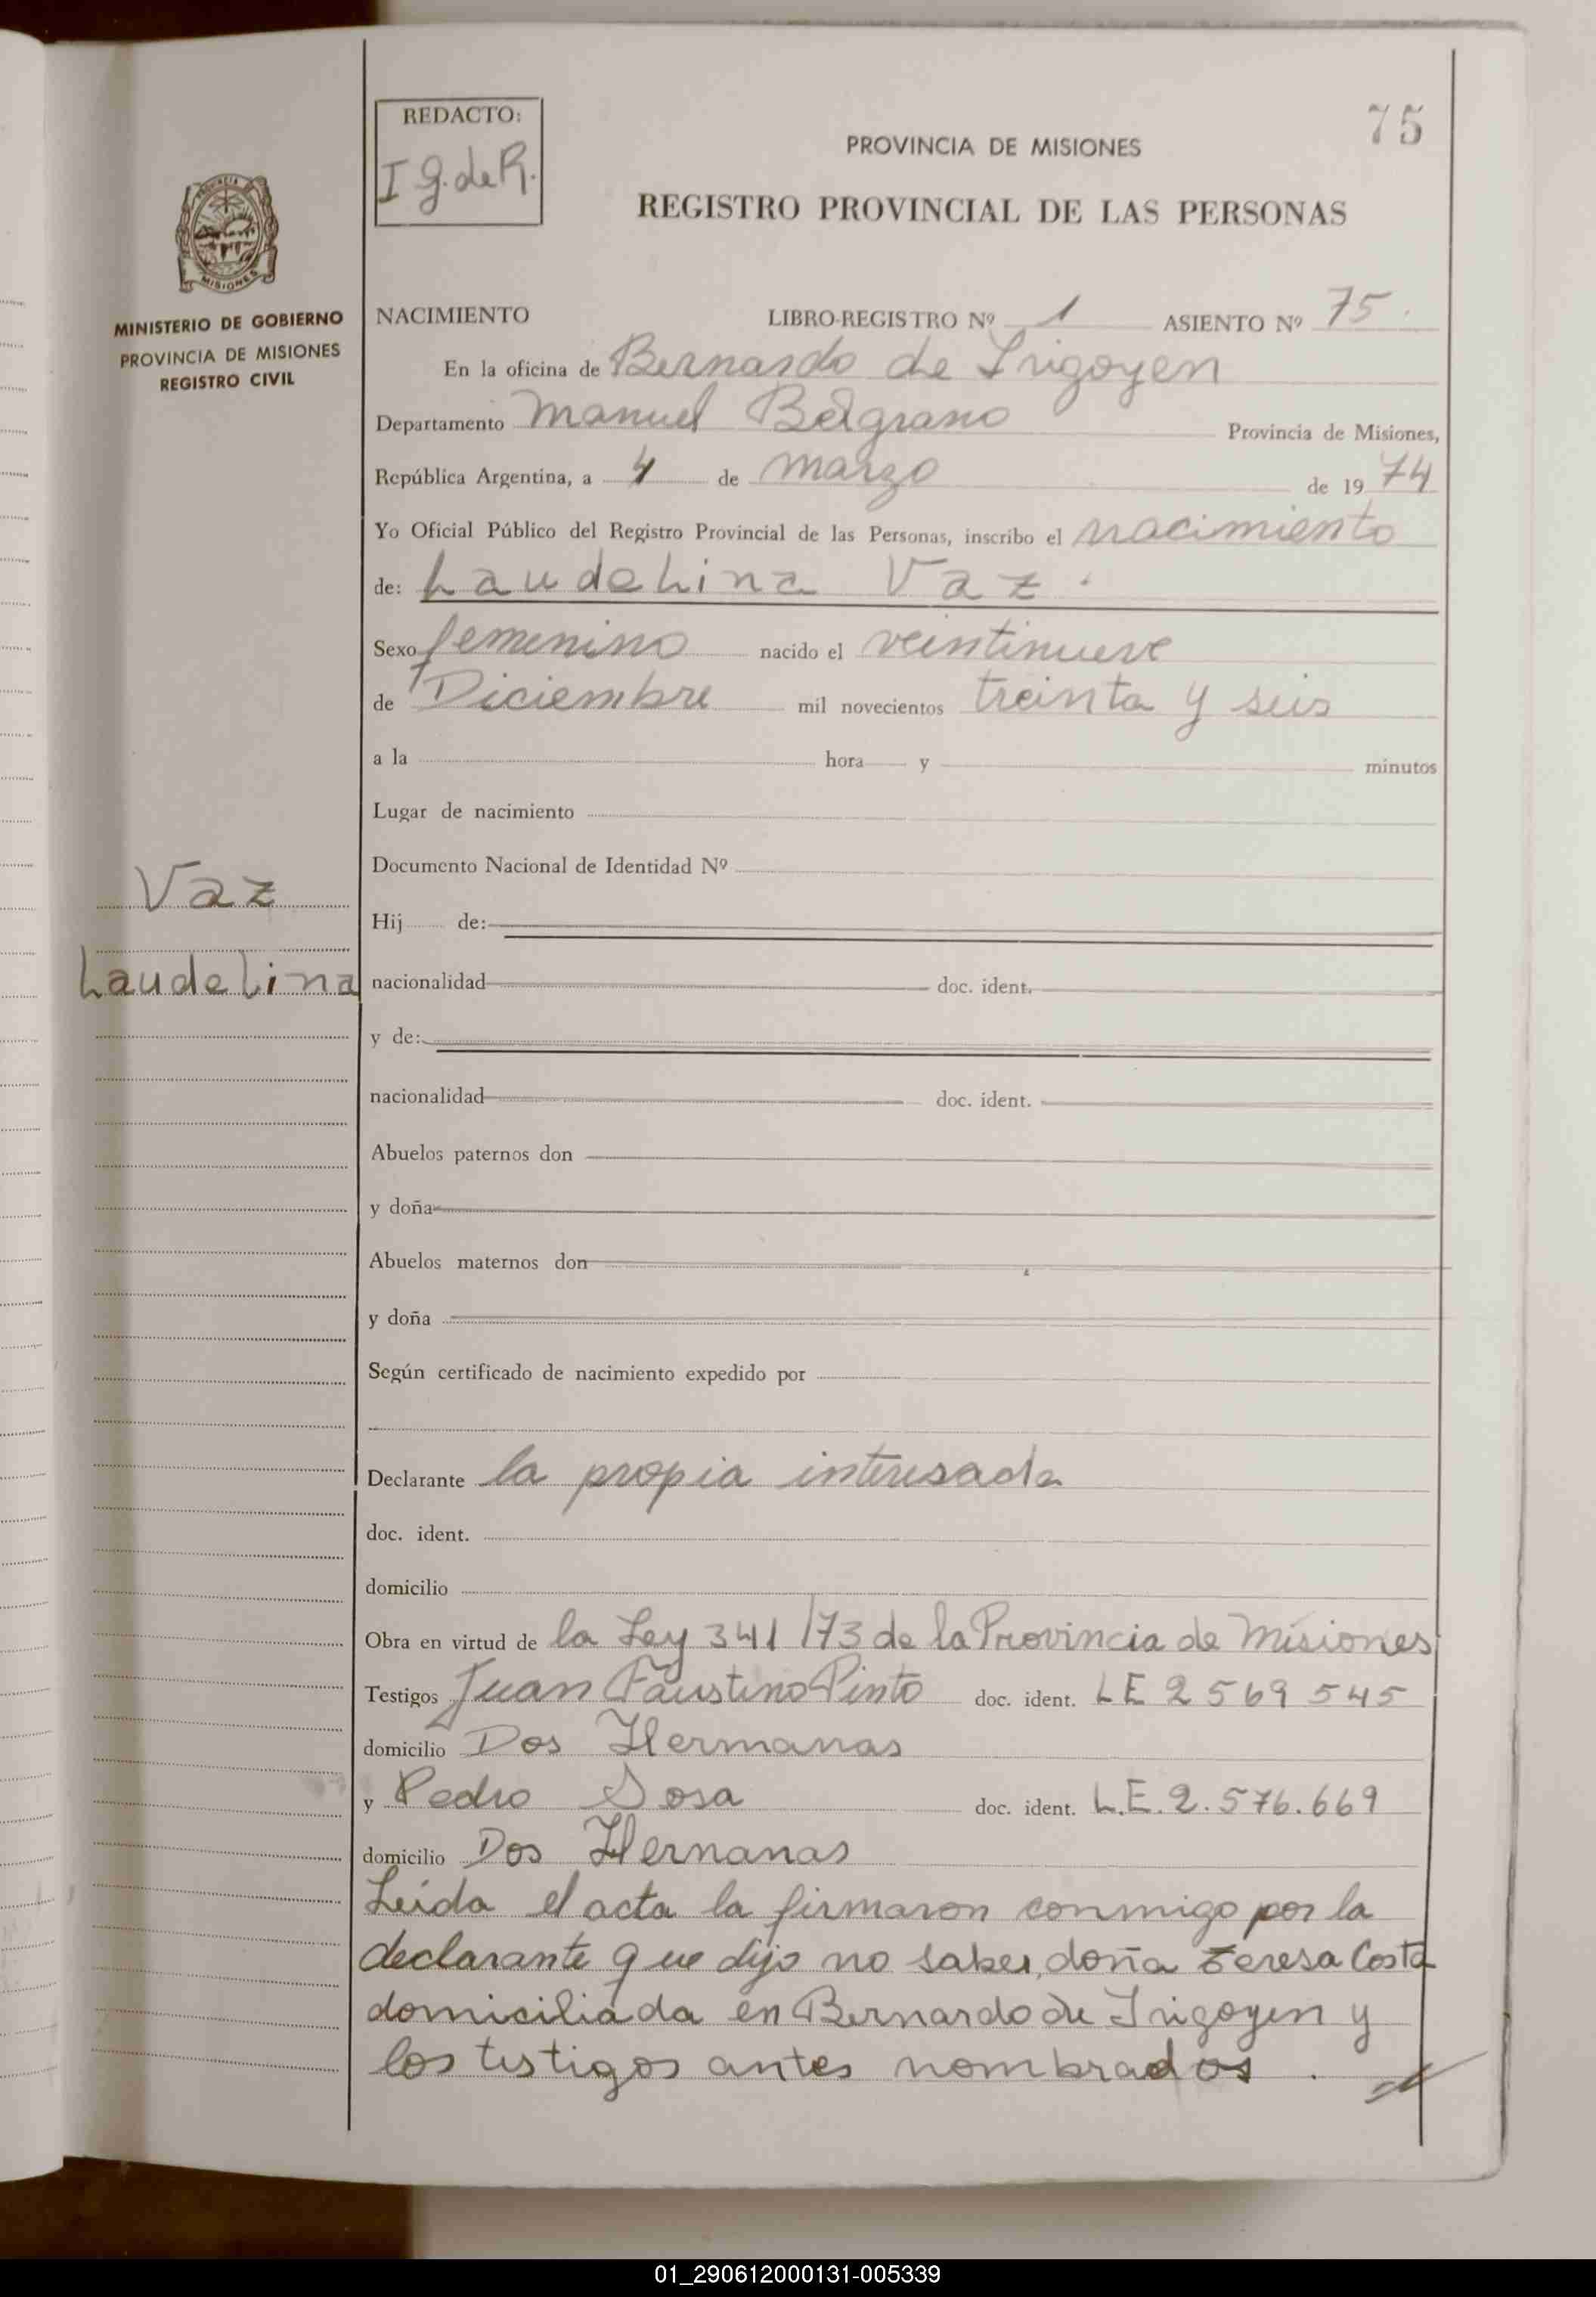 75
REDACTO:
I g. de R.
PROVINCIA DE MISIONES
REGISTRO PROVINCIAL DE LAS PERSONAS
PROVINCIA
MISIONES
MINISTERIO DE GOBIERNO
PROVINCIA DE MISIONES
REGISTRO CIVIL
NACIMIENTO LIBRO-REGISTRO Nº 1 ASIENTO Nº 75.
En la oficina de Bernardo de Irigoyen
Departamento Manuel Belgrano Provincia de Misiones,
República Argentina, a 4 de marzo de 1974
Yo Oficial Público del Registro Provincial de las Personas, inscribo el nacimiento
de: Laudelina Vaz.
Sexo femenino nacido el veintinueve
de Diciembre mil novecientos treinta y seis
a la hora y minutos
Lugar de nacimiento
Documento Nacional de Identidad Nº
Vaz
Hij de:
Laudelina
nacionalidad doc. ident.
y de:
nacionalidad doc. ident.
Abuelos paternos don
y doña
Abuelos maternos don
y doña
Según certificado de nacimiento expedido por
Declarante la propia interesada
doc. ident.
domicilio
Obra en virtud de la Ley 341/73 de la Provincia de Misiones
Testigos Juan Faustino Pinto doc. ident. LE 2569545
domicilio Dos Hermanas
y Pedro Sosa doc. ident. L.E. 2.576.669
domicilio Dos Hernanas
Leída el acta la firmaron conmigo por la
declarante que dijo no saber, doña Teresa Costa
domiciliada en Bernardo de Irigoyen y
los testigos antes nombrados.
01_290612000131-005339